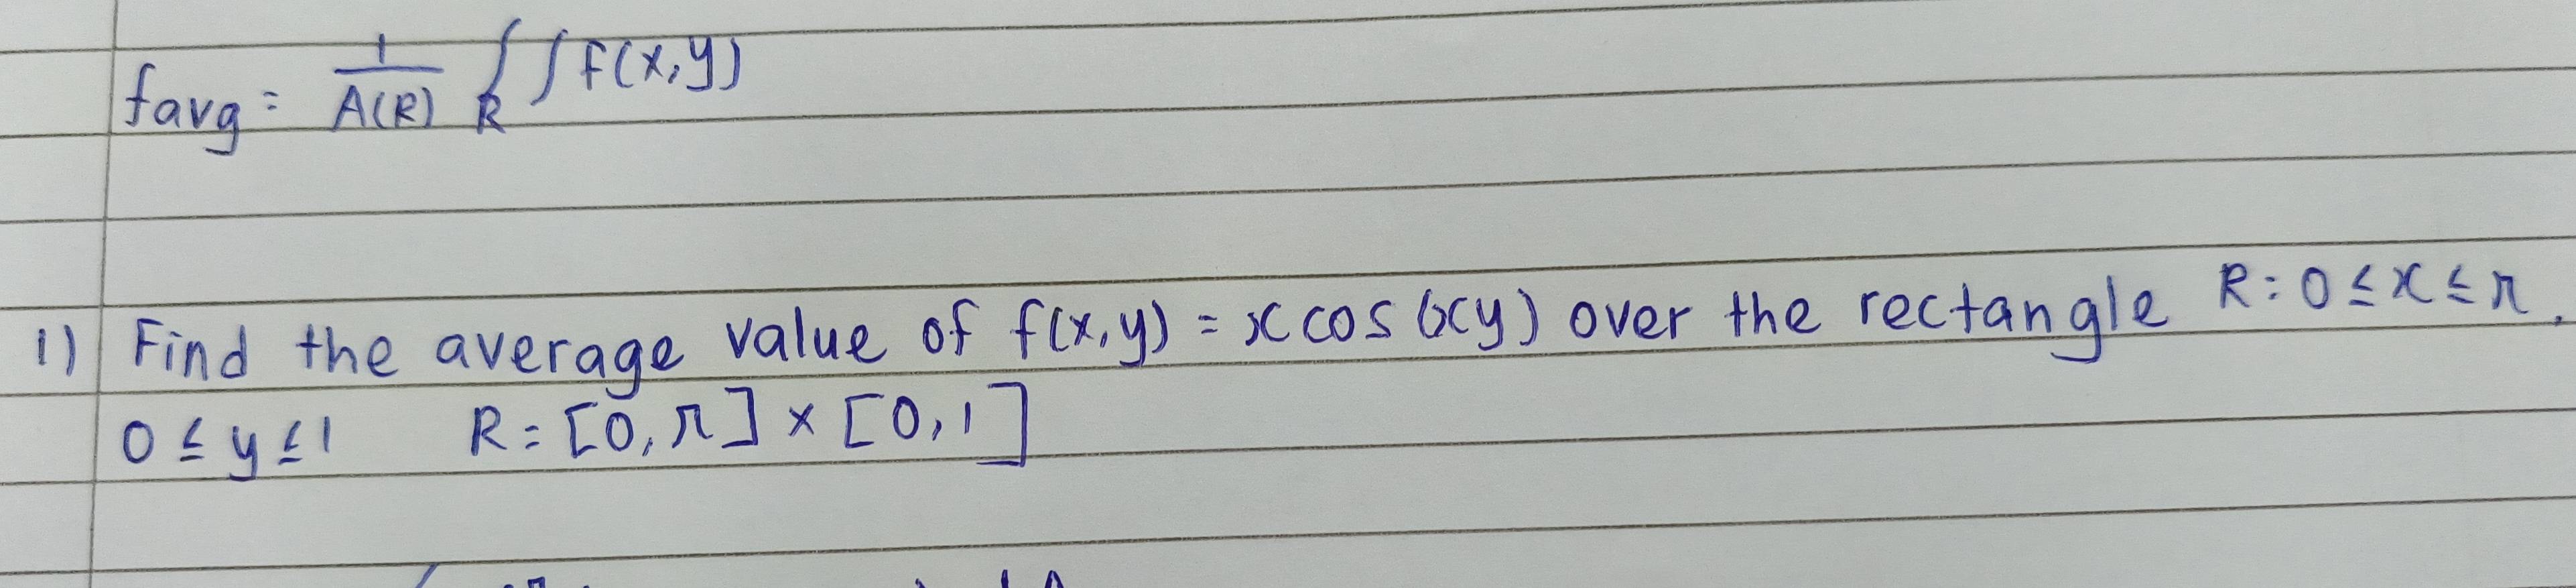 favg = 1/A(R) ∫∫R f(x,y)
1) Find the average value of f(x,y) = x cos (xy) over the rectangle R: 0 ≤ x ≤ π,
0 ≤ y ≤ 1 R = [0, π] × [0, 1]